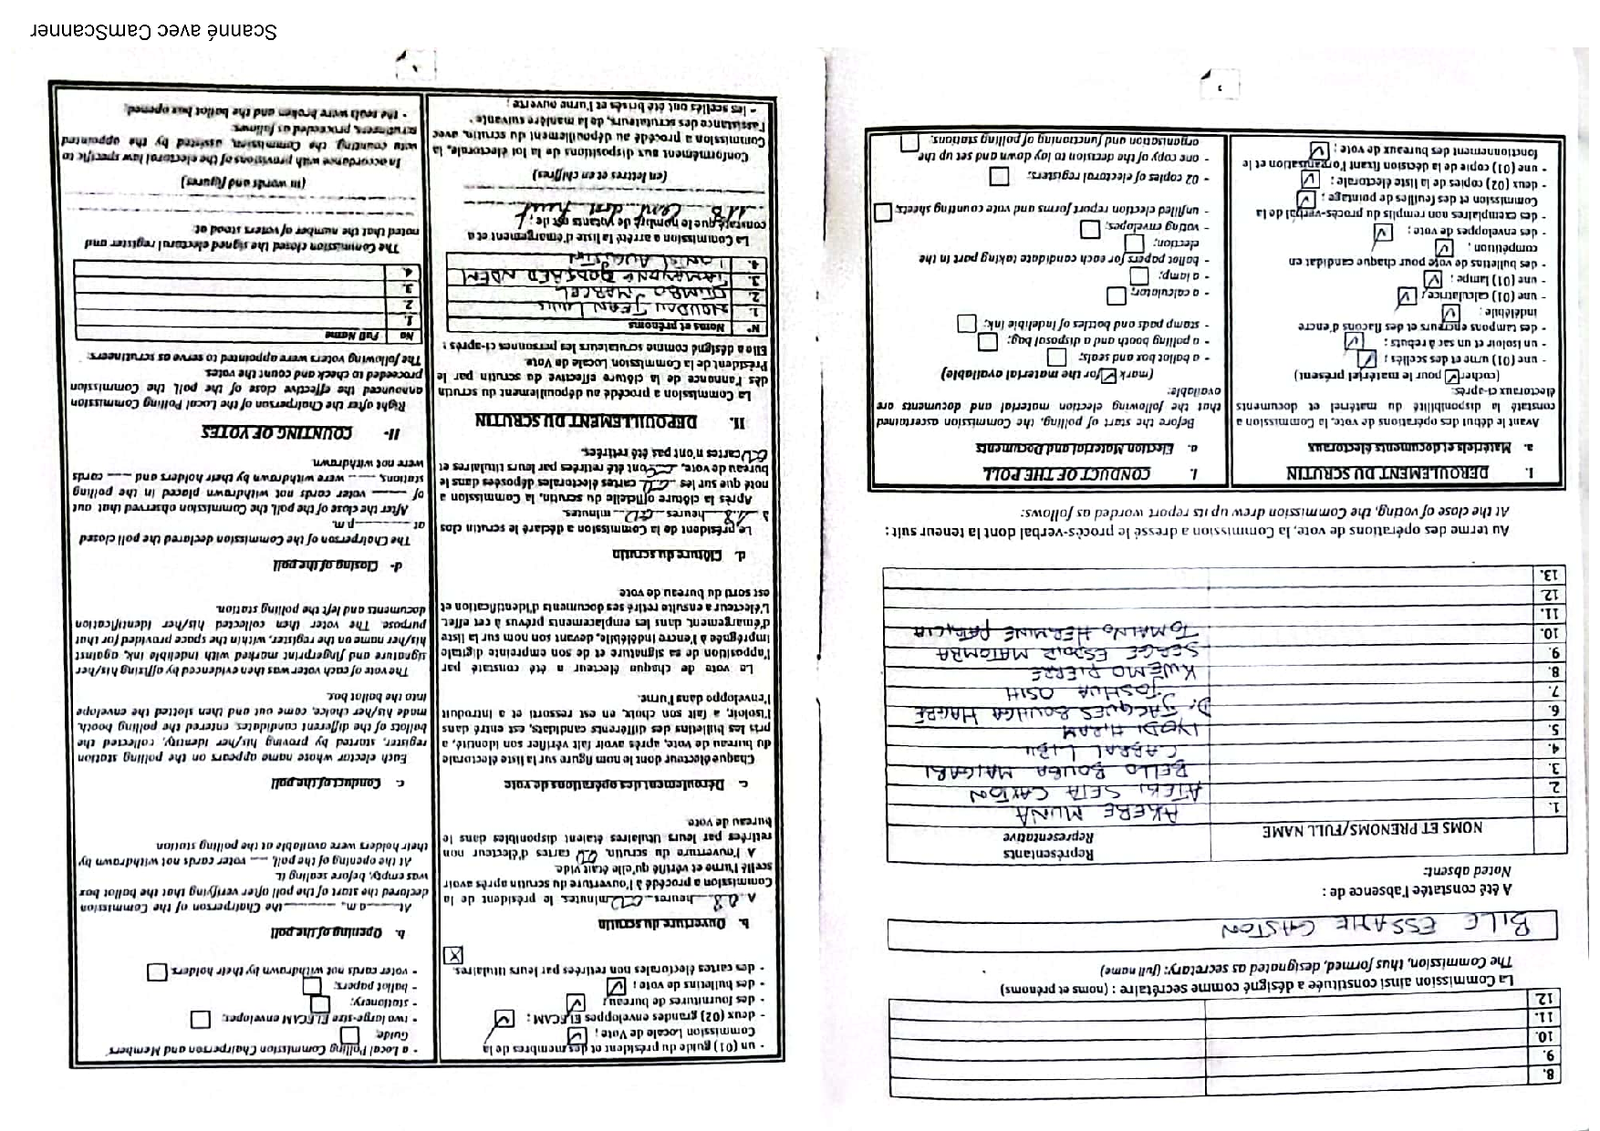 8.
9.
10.
11.
12
La Commission ainsi constituée a désigné comme secrétaire : (noms et prénoms)
The Commission, thus formed, designated as secretary: (full name)
BILE ESSAME GASTON
A été constatée l'absence de :
Noted absent:
NOMS ET PRENOMS/FULL NAME
Représentants
Representative
1. AKERE MUNA
2 ATEKI SETA CAXTON
3. BELLO BOUBA MAIGARI
4. CABRAL LIBII
5. IYODI HIRAM
6. Dr JACQUES BOUHGA HAGBE
7. JOSHUA OSIH
8 KWEMO PIERRE
9. SERGE ESPOIR MATOMBA
10. TOMAINO HERMINE PATRICIA
11.
12.
13.
Au terme des opérations de vote, la Commission a dressé le procès-verbal dont la teneur suit :
At the close of voting, the Commission drew up its report worded as follows:
I. DEROULEMENT DU SCRUTIN
a. Matériels et documents électoraux
Avant le début des opérations de vote, la Commission a
constaté la disponibilité du matériel et documents
électoraux ci-après:
(cocher pour le matériel présent)
- une (01) urne et des scellés ;
- un isoloir et un sac à rebuts ;
- des tampons encreurs et des flacons d'encre
indélébile ;
- une (01) calculatrice ;
- une (01) lampe ;
- des bulletins de vote pour chaque candidat en
compétition ;
- des enveloppes de vote ;
- des exemplaires non remplis du procès-verbal de la
Commission et des feuilles de pointage ;
- deux (02) copies de la liste électorale ;
- une (01) copie de la décision fixant l'organisation et le
fonctionnement des bureaux de vote ;
I. CONDUCT OF THE POLL
a. Election Material and Documents
Before the start of polling, the Commission ascertained
that the following election material and documents are
available:
(mark for the material available)
- a ballot box and seals;
- a polling booth and a disposal bag;
- stamp pads and bottles of indelible ink;
- a calculator;
- a lamp;
- ballot papers for each candidate taking part in the
election;
- voting envelopes;
- unfilled election report forms and vote counting sheets;
- 02 copies of electoral registers;
- one copy of the decision to lay down and set up the
organisation and functioning of polling stations;
3
- un (01) guide du président et des membres de la
Commission Locale de Vote ;
- deux (02) grandes enveloppes ELECAM ;
- des fournitures de bureau ;
- des bulletins de vote ;
- des cartes électorales non retirées par leurs titulaires.
b. Ouverture du scrutin
A 08 heures 00 minutes, le président de la
Commission a procédé à l'ouverture du scrutin après avoir
scellé l'urne et vérifié qu'elle était vide.
A l'ouverture du scrutin, 00 cartes d'électeur non
retirées par leurs titulaires étaient disponibles dans le
bureau de vote.
c. Déroulement des opérations de vote
Chaque électeur dont le nom figure sur la liste électorale
du bureau de vote, après avoir fait vérifier son identité, a
pris les bulletins des différents candidats, est entré dans
l'isoloir, a fait son choix, en est ressorti et a introduit
l'enveloppe dans l'urne.
Le vote de chaque électeur a été constaté par
l'apposition de sa signature et de son empreinte digitale
imprégnée à l'encre indélébile, devant son nom sur la liste
d'émargement, dans les emplacements prévus à cet effet.
L'électeur a ensuite retiré ses documents d'identification et
est sorti du bureau de vote
d. Clôture du scrutin
Le président de la Commission a déclaré le scrutin clos
à 18 heures 00 minutes.
Après la clôture officielle du scrutin, la Commission a
noté que sur les 00 cartes électorales déposées dans le
bureau de vote, 00 ont été retirées par leurs titulaires et
00 cartes n'ont pas été retirées.
II. DEPOUILLEMENT DU SCRUTIN
La Commission a procédé au dépouillement du scrutin
dès l'annonce de la clôture effective du scrutin par le
Président de la Commission Locale de Vote.
Elle a désigné comme scrutateurs les personnes ci-après :
N° Noms et prénoms
1. JEAN LOUIS
2. MARCEL
3.
4. AUGUSTIN
La Commission a arrêté la liste d'émargement et a
constaté que le nombre de votants est de :
118 Cent dix huit
(en lettres et en chiffres)
Conformément aux dispositions de la loi électorale, la
Commission a procédé au dépouillement du scrutin, avec
l'assistance des scrutateurs, de la manière suivante -
- les scellés ont été brisés et l'urne ouverte ;
- a Local Polling Commission Chairperson and Members'
Guide;
- two large-size ELECAM envelopes;
- stationery;
- ballot papers;
- voter cards not withdrawn by their holders
b. Opening of the poll
At a.m., the Chairperson of the Commission
declared the start of the poll after verifying that the ballot box
was empty, before sealing it.
At the opening of the poll, voter cards not withdrawn by
their holders were available at the polling station
c. Conduct of the poll
Each elector whose name appears on the polling station
register, started by proving his/her identity, collected the
ballots of the different candidates, entered the polling booth,
made his/her choice, came out and then slotted the envelope
into the ballot box.
The vote of each voter was then evidenced by affixing his/her
signature and fingerprint marked with indelible ink, against
his/her name on the register, within the space provided for that
purpose. The voter then collected his/her identification
documents and left the polling station.
d- Closing of the poll
The Chairperson of the Commission declared the poll closed
at p.m.
After the close of the poll, the Commission observed that out
of voter cards not withdrawn placed in the polling
stations, were withdrawn by their holders and cards
were not withdrawn.
II- COUNTING OF VOTES
Right after the Chairperson of the Local Polling Commission
announced the effective close of the poll, the Commission
proceeded to check and count the votes.
The following voters were appointed to serve as scrutineers:
No Full Name
1.
2
3.
4.
The Commission closed the signed electoral register and
noted that the number of voters stood at:
(in words and figures)
In accordance with provisions of the electoral law specific to
vote counting, the Commission, assisted by the appointed
scrutineers, proceeded as follows:
- the seals were broken and the ballot box opened;
Scanné avec CamScanner